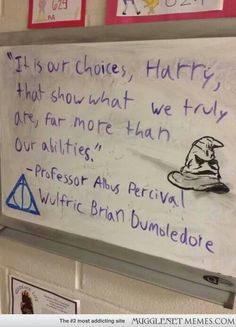 G24
"It is our choices, Harry,
that show what we truly
are, far more than
our abilities."
-Professor Albus Percival
Wulfric Brian Dumbledore
The #2 most addicting site
MUGGLENETMEMES.COM